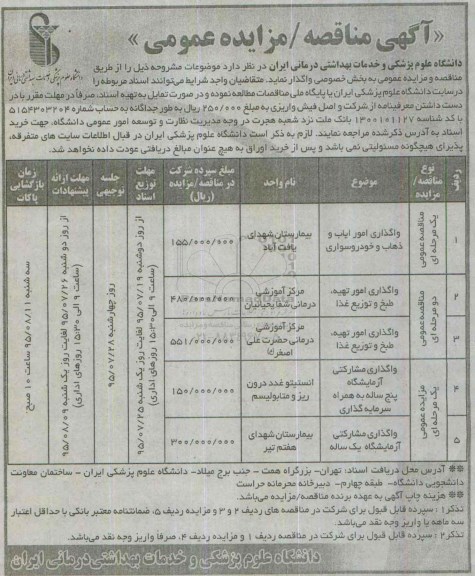 «آگهی مناقصه/مزایده عمومی»
دانشگاه علوم پزشکی و خدمات بهداشتی درمانی ایران در نظر دارد موضوعات مشروحه ذیل را از طریق
مناقصه و مزایده عمومی به بخش خصوصی واگذار نماید. متقاضیان واجد شرایط می‌توانند اسناد مربوطه را
در سایت دانشگاه علوم پزشکی ایران یا پایگاه ملی مناقصات مطالعه نموده و در صورت تمایل به تهیه اسناد، صرفاً در مهلت مقرر با در
دست داشتن معرفینامه از شرکت و اصل فیش واریزی به مبلغ ۲۵۰/۰۰۰ ریال به طور جداگانه به حساب شماره ۵۱۵۴۳۰۳۲۰۴
با کد شناسه ۱۳۰۰۱۰۱۱۲۷ بانک ملت نزد شعبه هجرت در وجه مدیریت نظارت و توسعه امور عمومی دانشگاه، جهت خرید
اسناد به آدرس ذکر شده مراجعه نمایند. لازم به ذکر است دانشگاه علوم پزشکی ایران در قبال اطلاعات سایت های متفرقه،
پذیرای هیچگونه مسئولیتی نمی باشد و پس از خرید اوراق به هیچ عنوان مبالغ دریافتی عودت داده نخواهد شد.
ردیف | نوع مناقصه/مزایده | موضوع | نام واحد | مبلغ سپرده شرکت در مناقصه/مزایده (ریال) | مهلت توزیع اسناد | جلسه توجیهی | مهلت ارائه پیشنهادات | زمان بازگشایی پاکات
۱ | مناقصه عمومی یک مرحله ای | واگذاری امور ایاب و ذهاب و خودروسواری | بیمارستان شهدای یافت آباد | ۱۵۵/۰۰۰/۰۰۰
۲ | مناقصه عمومی دو مرحله ای | واگذاری امور تهیه، طبخ و توزیع غذا | مرکز آموزشی درمانی شفا یحیائیان | ۴۸۰/۰۰۰/۰۰۰
۳ | واگذاری امور تهیه، طبخ و توزیع غذا | مرکز آموزشی درمانی حضرت علی اصغر(ع) | ۵۵۱/۰۰۰/۰۰۰
۴ | مزایده عمومی یک مرحله ای | واگذاری مشارکتی آزمایشگاه پنج ساله به همراه سرمایه گذاری | انستیتو غدد درون ریز و متابولیسم | ۱۵۰/۰۰۰/۰۰۰
۵ | واگذاری مشارکتی آزمایشگاه یک ساله | بیمارستان شهدای هفتم تیر | ۳۰۰/۰۰۰/۰۰۰
از روز دوشنبه ۹۵/۰۷/۱۹ لغایت روز یک شنبه ۹۵/۰۷/۲۵ (ساعت ۹ الی ۱۵:۳۰ روزهای اداری)
روز چهارشنبه ۹۵/۰۷/۲۸
از روز دو شنبه ۹۵/۰۷/۲۶ لغایت روز یک شنبه ۹۵/۰۸/۰۹ (ساعت ۹ الی ۱۵:۳۰ روزهای اداری)
سه شنبه ۹۵/۰۸/۱۱ ساعت ۱۰ صبح
** آدرس محل دریافت اسناد: تهران- بزرگراه همت - جنب برج میلاد- دانشگاه علوم پزشکی ایران - ساختمان معاونت
دانشجویی دانشگاه- طبقه چهارم- دبیرخانه محرمانه حراست
** هزینه چاپ آگهی به عهده برنده مناقصه/مزایده می‌باشد.
تذکر۱: سپرده قابل قبول برای شرکت در مناقصه های ردیف ۲ و ۳ و مزایده ردیف ۵، ضمانتنامه معتبر بانکی با حداقل اعتبار
سه ماهه یا واریز وجه نقد می‌باشد.
تذکر۲: سپرده قابل قبول برای شرکت در مناقصه ردیف ۱ و مزایده ردیف ۴، صرفا واریز وجه نقد می‌باشد.
دانشگاه علوم پزشکی و خدمات بهداشتی درمانی ایران